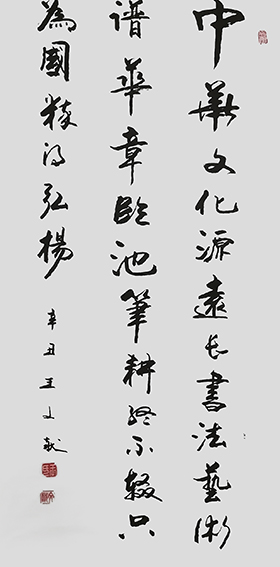 中華文化源遠長書法藝術
譜華章臨池筆耕終不輟只
為國粹得弘楊
辛丑王文献